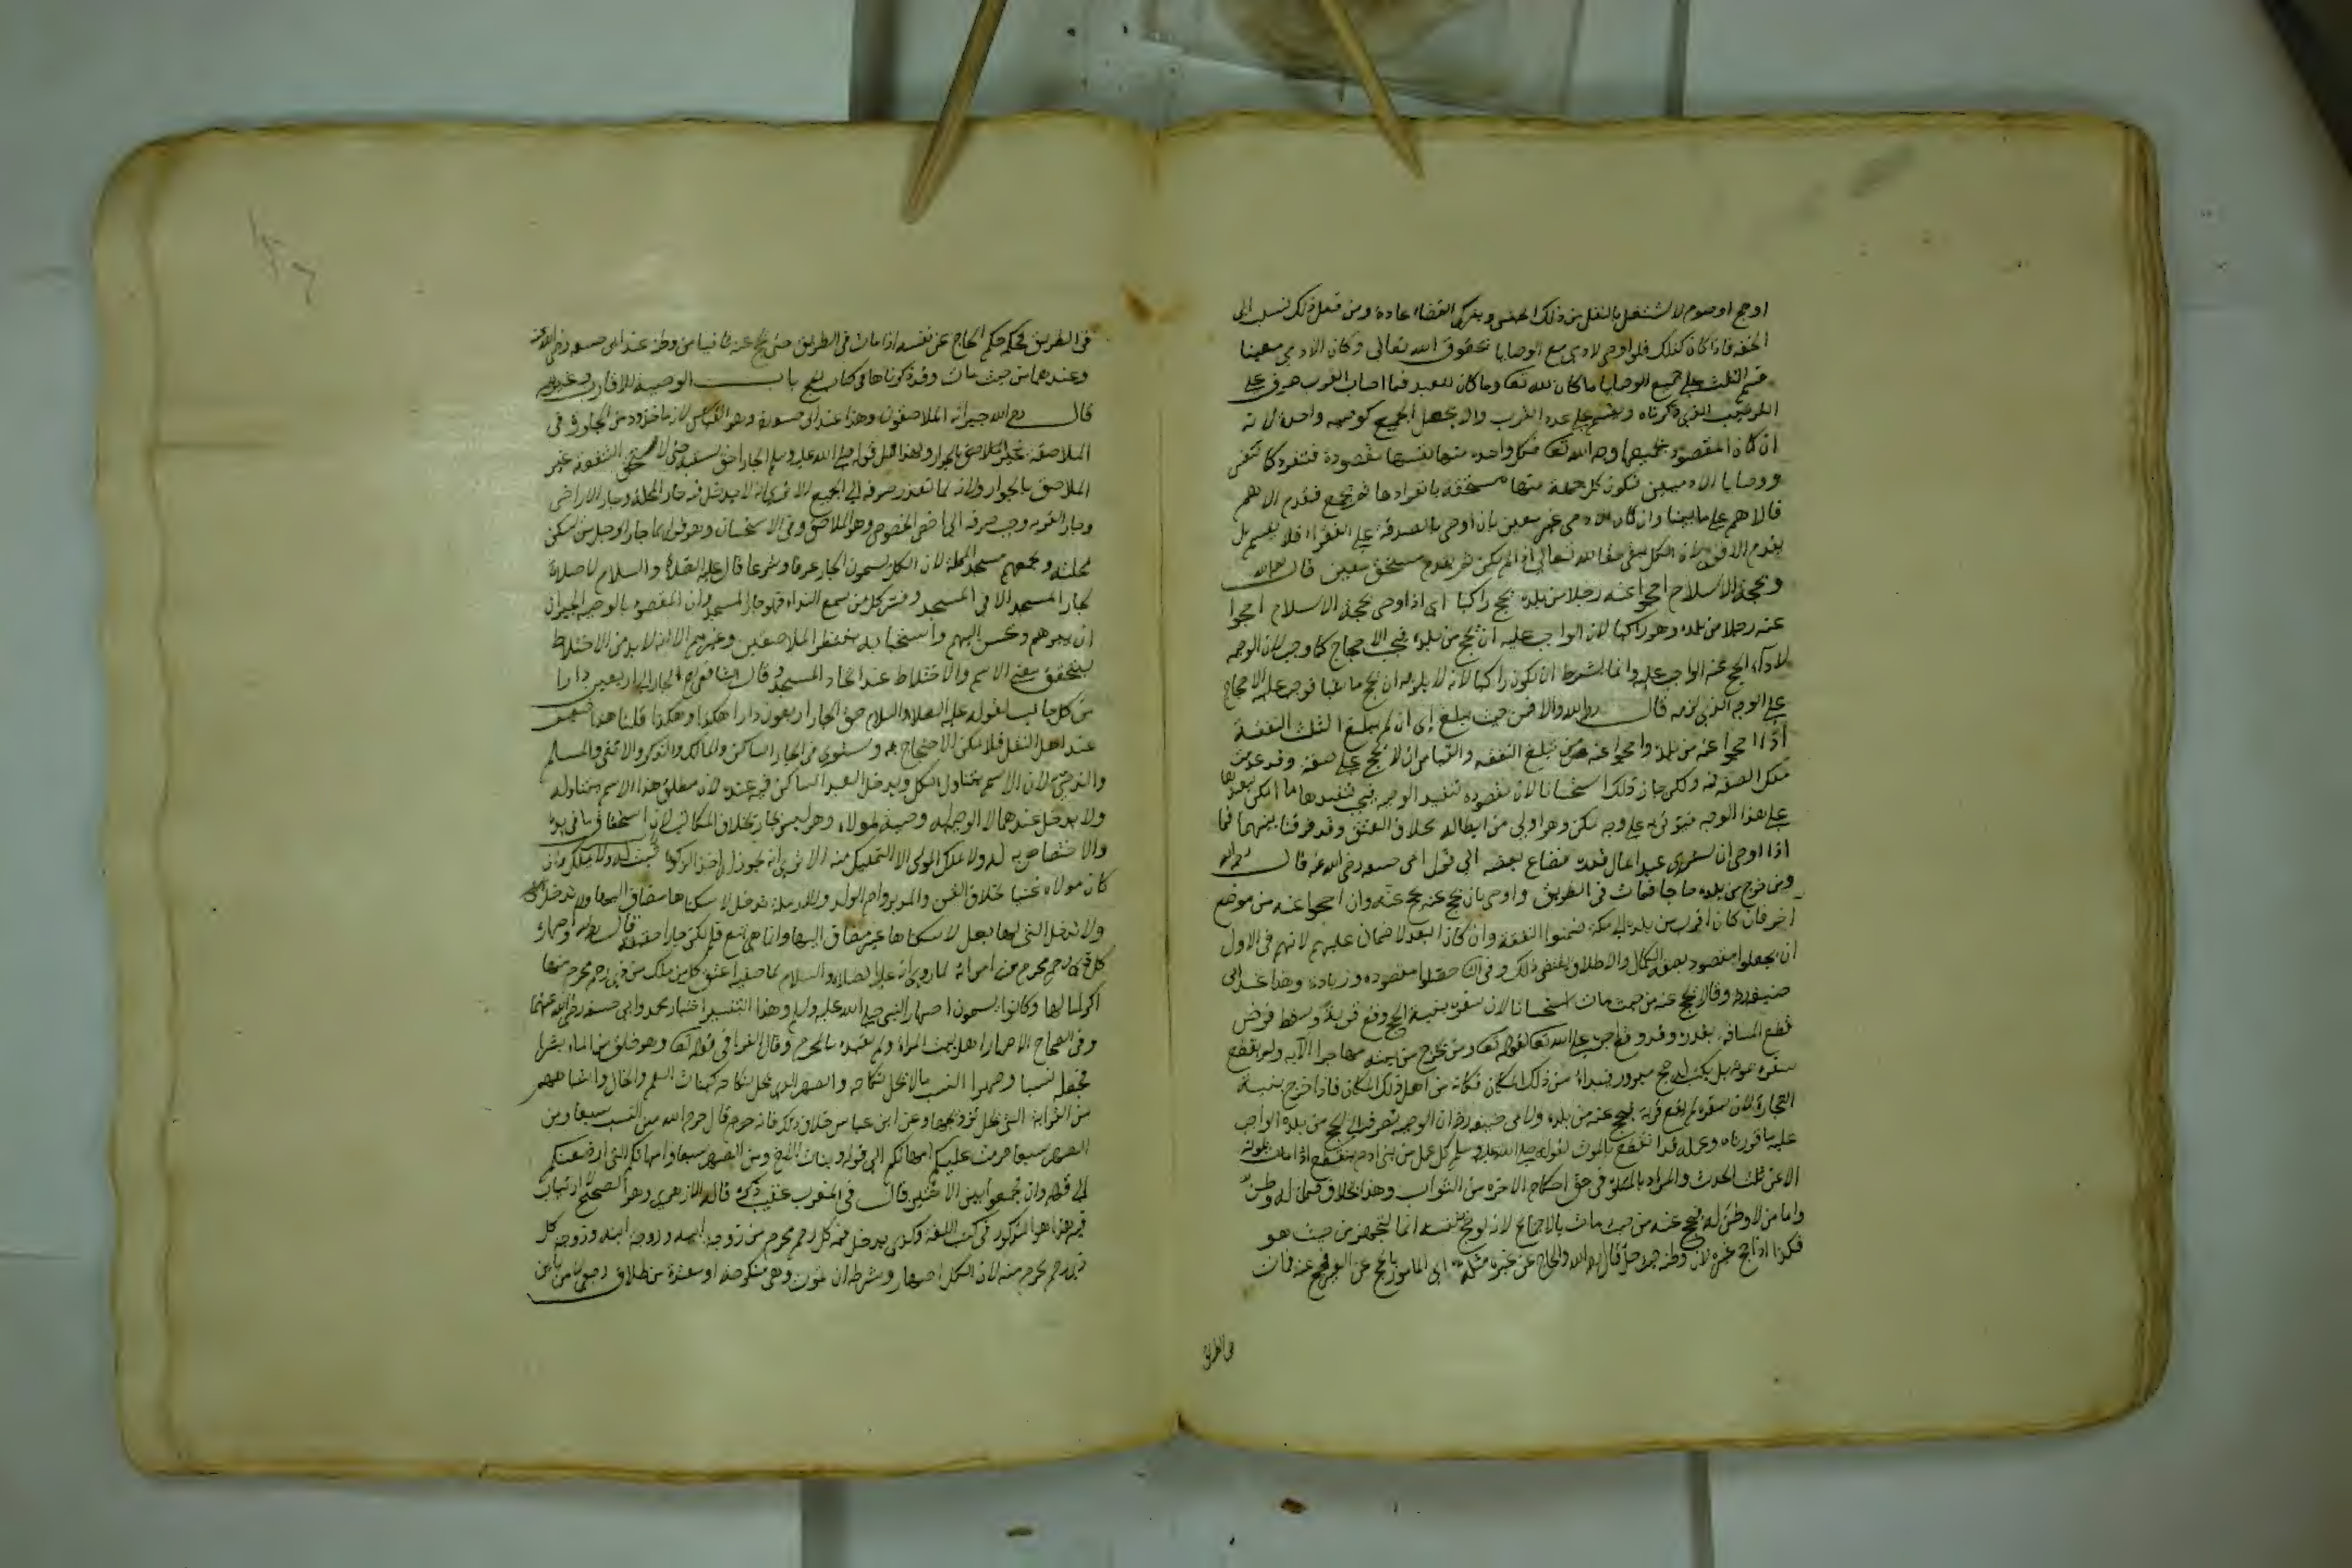 او حج او صوم لا يشتغل بالنفل من ذلك الجنس ويترك القضاء عادة ومن فعل ذلك نسب الى
الخفة فاذا كان كذلك فلو اوصى لادمي مع الوصايا بحقوق الله تعالى وكان الادمي معينا
قسم الثلث على جميع الوصايا ما كان لله تع وما كان للعبد فما اصاب القرب صرف على
الترتيب الذي ذكرناه ويقسم على عدد القرب ولا يجعل الجميع كوصية واحدة لانه
ان كان المقصود بجميعها وجه الله تع فكل واحدة منها نفسها مقصودة فتنفرد كما تنفرد
ووصايا الادميين فتكون كل جملة منها مستحقة بانفرادها ثم تجمع فيقدم الاهم
فالاهم على ما بينا وان كان الادمي غير معين بان اوصى بالصدقة على الفقراء فلا يقسم بل
يقدم الاقوى لان الكل يبقى حقا لله تعالى اذا لم يكن ثم مستحق معين قال رحمه الله
وبحجة الاسلام احجوا عنه رجلا من بلده يحج راكبا اى اذا اوصى بحجة الاسلام احجوا
عنه رجلا من بلده وهو راكبا لان الواجب عليه ان يحج من بلده فيجب الاحجاج كما وجب لان الوصية
لاداء الحج عنه الواجب عليه وانما يشترط ان يكون راكبا لانه لا يلزمه ان يحج ماشيا فوجب عليه الاحجاج
على الوجه الذي لزمه قال رحمه الله والا فمن حيث يبلغ اى ان لم يبلغ الثلث النفقة
اذا احجوا عنه من بلده واحجوا عنه من حيث تبلغ النفقة والقياس ان لا يحج على صفة وقد عدمت
تلك الصفة فيه ولكن جاز ذلك استحسانا لان مقصوده تنفيذ الوصية فيجب تنفيذها ما امكن
على هذا الوجه فيؤتى به على وجه يمكن وهو اولى من ابطاله بخلاف العتق وقد فرقنا بينهما فيما
اذا اوصى ان يشترى عبدا بمال قدره فضاع بعضه الى قول ابى حنيفه رضى الله عنه قال رحمه الله
ومن خرج من بلده حاجا فمات في الطريق واوصى بان يحج عنه يحج عنه وان احجوا عنه من موضع
اخر فان كان اقرب من بلده الى مكة ضمنوا النفقة وان كان ابعد لا ضمان عليهم لانهم في الاول
ان يجعلوا مقصوده بصفة الكمال والاطلاق يقتضى ذلك وفي الثاني حصلوا مقصوده وزيادة وهذا عند ابى
حنيفه رح وقالا يحج عنه من حيث مات استحسانا لان سفره بنية الحج وقع قربة وسقط فرض
قطع المسافة بقدره وقد وقع اجره على الله تع لقوله تع ومن يخرج من بيته مهاجرا الآية ولم ينقطع
سفره بموته بل يكتب له حج مبرور فيبدأ من ذلك المكان فكأنه من اهل ذلك المكان فاذا خرج بنية
التجارة لان سفره لم يقع قربة فيحج عنه من بلده ولابى حنيفه رح ان الوصية تنصرف الى الحج من بلده الواجب
عليه ما قررناه وعمله قد انقطع بالموت لقوله صلى الله عليه وسلم كل عمل من بنى ادم ينقطع اذا مات
الا عن ثلث الحديث والمراد بالثلث في حق احكام الاخرة من الثواب وهذا الخلاف فيمن له وطن
واما من لا وطن له فيحج عنه من حيث مات بالاجماع لانه لو حج بنفسه انما يتجهز من حيث هو
فكذا اذا حج غيره لان وطنه حيث حل قال رحمه الله والحاج عن غيره مثله اى المامور بالحج عن الغير يحج عنه فمات
في الطريق
في الطريق فحكمه حكم الحاج عن نفسه اذا مات في الطريق حتى يحج عنه ثانيا من وطنه عند ابى حنيفه رضى الله عنه
وعندهما من حيث مات وقد ذكرناها في كتاب الحج باب الوصية للاقارب وغيرهم
قال رح الله جيرانه الملاصقون وهذا عند ابى حنيفة وهو القياس لانه ماخوذ من المجاورة في
الملاصق بالجوار ولانه لما تعذر صرفه الى الجميع الا ترى انه لا يدخل فيه جار المحلة وجار الاراضى
وجار القرية وجب صرفه الى اخص الخصوص وهو الملاصق وفي الاستحسان وهو قولهما جار الرجل من يسكن
محلته ويجمعهم مسجد المحلة لان الكل يسمون الجار عرفا وشرعا قال عليه الصلاة والسلام لا صلاة
لجار المسجد الا في المسجد وفسر كل من سمع النداء فهو جار المسجد ولان المقصود بالوصية للجيران
ان يبرهم ويحسن اليهم واستحبابه ينتظم الملاصقين وغيرهم الا انه لا بد من الاختلاط
ليتحقق معنى الاسم والاختلاط عند اتحاد المسجد وقال الشافعى رح الجار الى اربعين دارا
من كل جانب لقوله عليه الصلاة والسلام حق الجار اربعون دارا هكذا وهكذا قلنا هذا ضعيف
عند اهل النقل فلا يمكن الاحتجاج به ويستوى في الجار الساكن والمالك والذكر والانثى والمسلم
والذمي لان الاسم يتناول الكل ويدخل العبد الساكن فيه عنده لان مطلق هذا الاسم يتناوله
ولا يدخل عندهما لان الوصية له وصية لمولاه وهو ليس بجار بخلاف المكاتب لان استحقاق ما في يده
والاختصاص به له ولا يملك المولى الا بالتمليك منه الا ترى انه يجوز له اخذ الزكوة
كان مولاه غنيا بخلاف القن والمدبر وام الولد والارملة تدخل لان سكناها مضاف اليها
ولا تدخل التى لها بعل لان سكناها غير مضاف اليها وانما هى تبع فلم يكن جارا حقيقة قال رحمه الله واصهاره
كل ذي رحم محرم من امراته لما روى انه عليه الصلاة والسلام لما تزوج صفية اعتق كل من ملك من ذي رحم محرم منها
اكراما لها وكانوا يسمون اصهار النبى صلى الله عليه وسلم وهذا التفسير اختيار محمد وابى عبيد رضى الله عنهما
وفي الصحاح الاصهار اهل بيت المراة ولم يقيده بالمحرم وقال الفرا في قوله تع وهو الذي خلق من الماء بشرا
فجعله نسبا وصهرا النسب ما لا يحل نكاحه والصهر الذى يحل نكاحه كبنات العم والخال واشباههم
من القرابة التى يحل تزويجها وعن ابن عباس خلاف ذلك فانه قال حرم الله من النسب سبعا ومن
الصهر سبعا حرمت عليكم امهاتكم الى قوله وبنات الاخ ومن الصهر سبعا وامهاتكم التى ارضعنكم
الى قوله وان تجمعوا بين الاختين قال في المغرب عقيب ذكره قال الازهرى وهو الصحيح لا ارتياب
فيه هذا هو المذكور في كتب اللغة وكذا يدخل فيه كل رحم محرم من زوجة ابيه وزوجة ابنه وزوجة كل
ذي رحم محرم منه لان الكل اصهار وشرطه ان يموت وهى منكوحته او معتدة من طلاق رجعى لا من باين